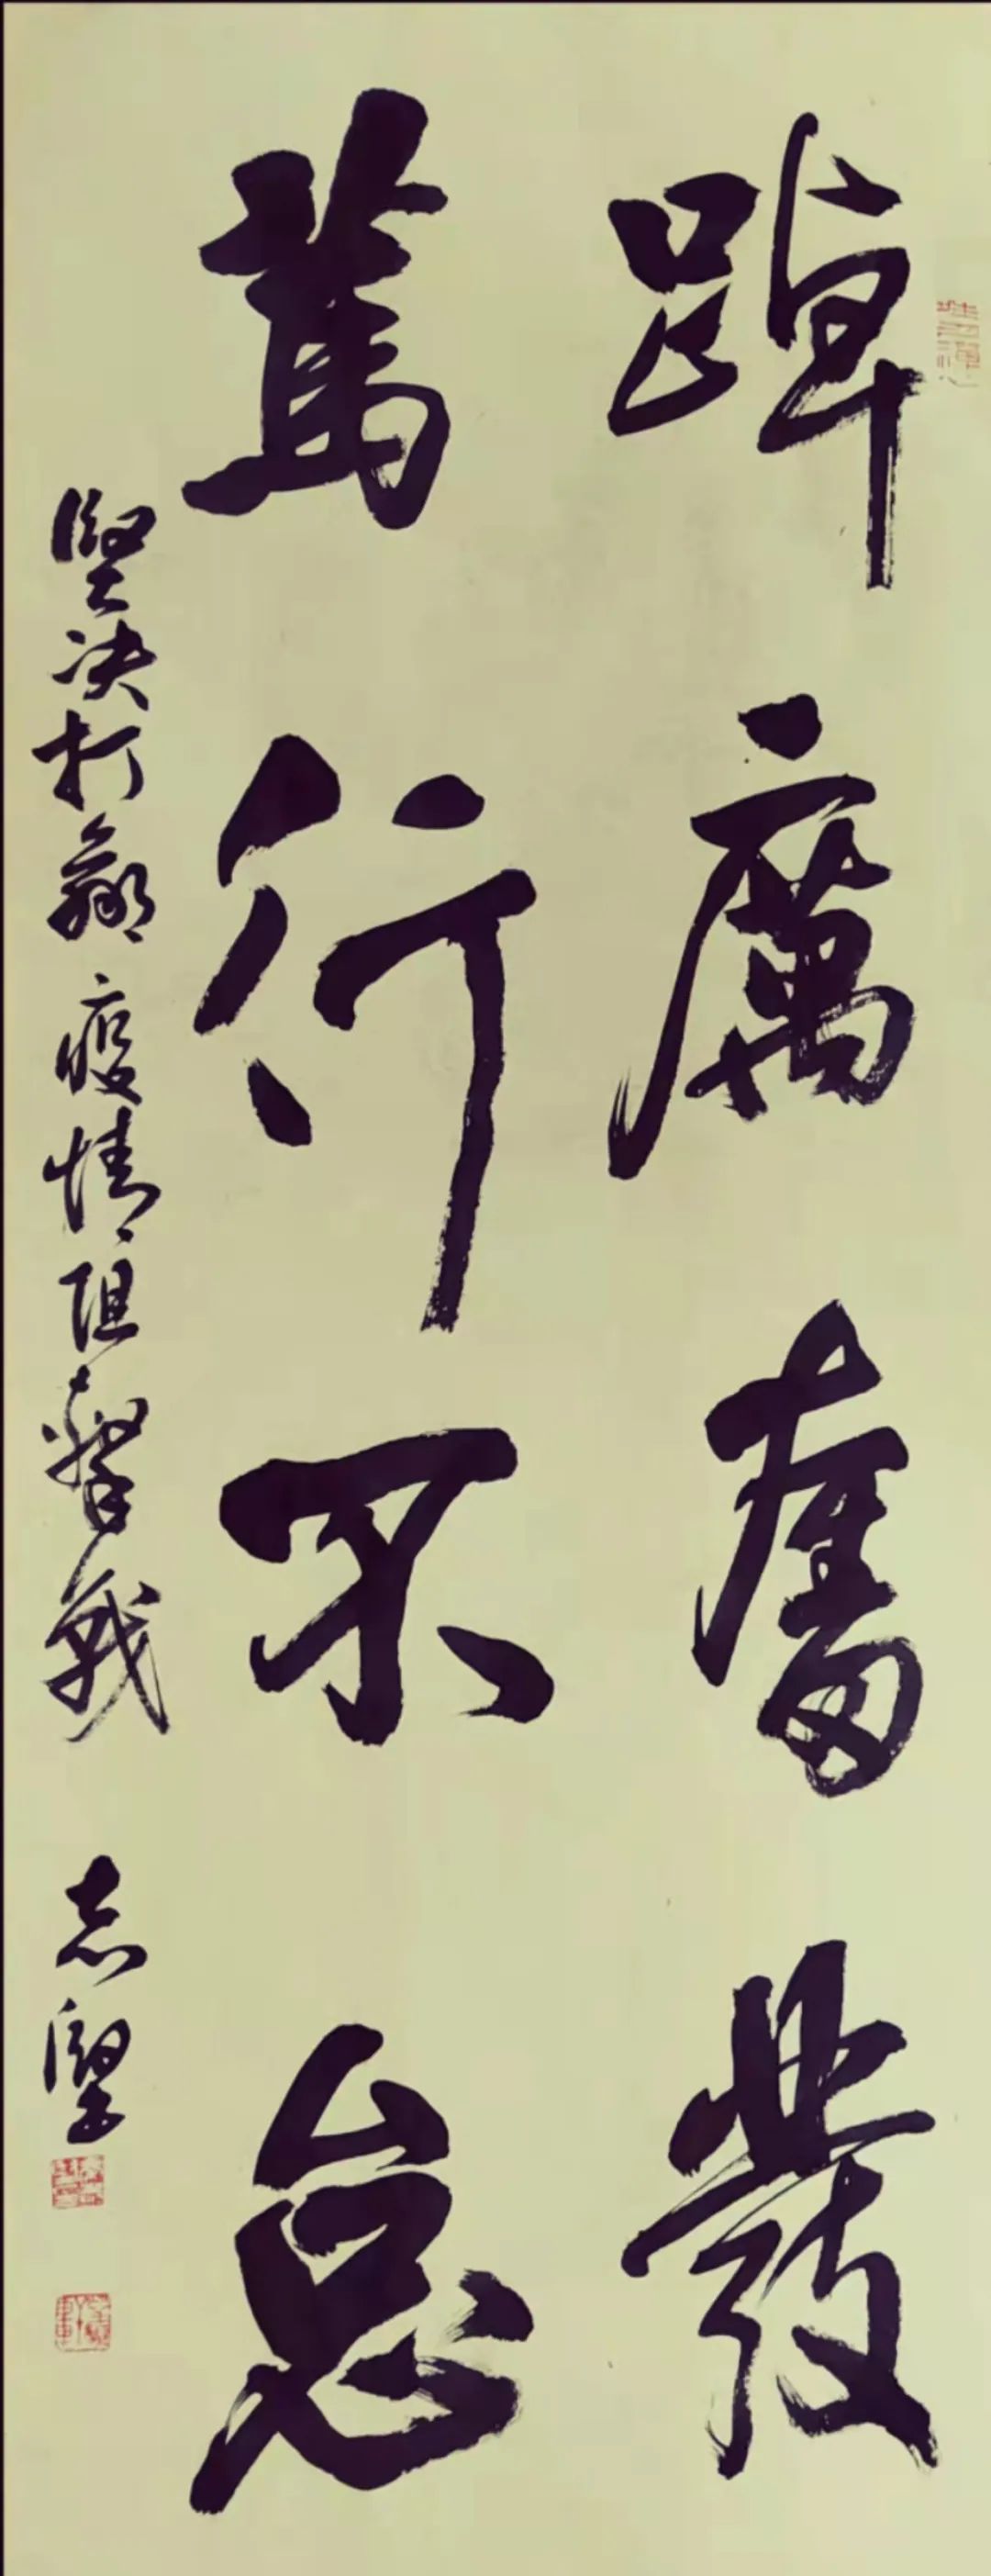 踔厲奮發
篤行不怠
堅決打贏疫情阻擊戰
志堅